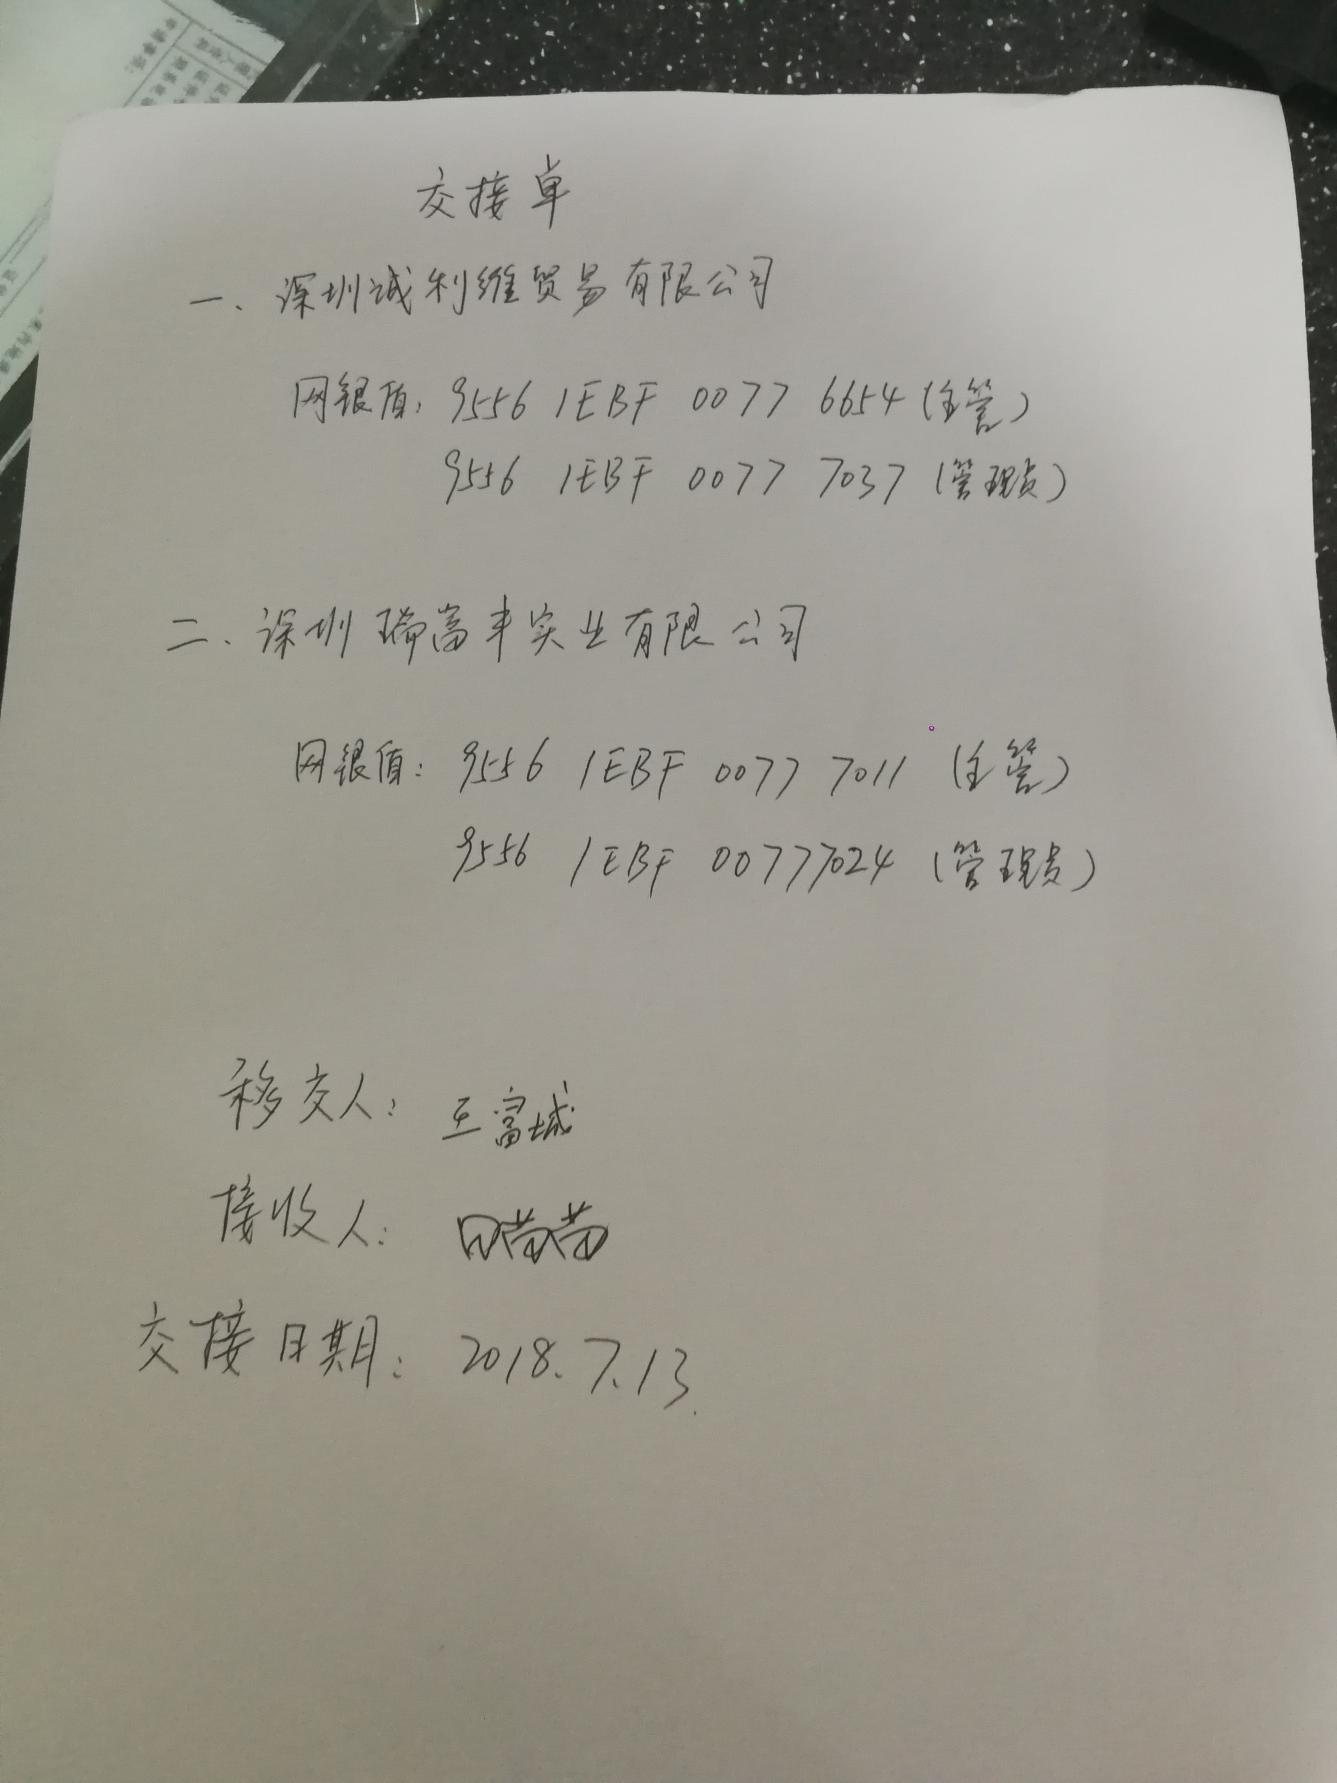 交接单
一、深圳诚利维贸易有限公司
网银盾：9556 1EBF 0077 6654（主管）
9556 1EBF 0077 7037（管理员）
二、深圳瑞富丰实业有限公司
网银盾：9556 1EBF 0077 7011（主管）
9556 1EBF 00777024（管理员）
移交人：王富城
接收人：田苗苗
交接日期：2018.7.13.